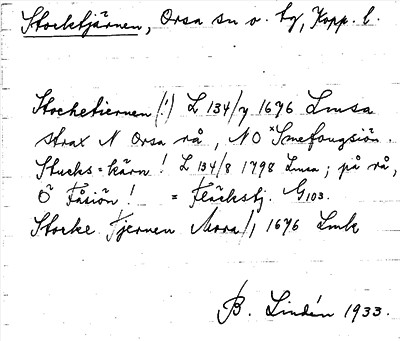 Stocktjärnen, Orsa sn o. tg, Kopp. l.
Stocketiernen (!) L 134/7 1696 Lmsa
strax N Orsa rå, NO ˣSmefougsiön.
Stucks=kärn! L 134/8 1798 Lmsa; på rå,
Ö Fåsiön! = Fläckstj. G103.
Stocke Tjernen Mora/1 1696 Lmk
B. Lindén 1933.